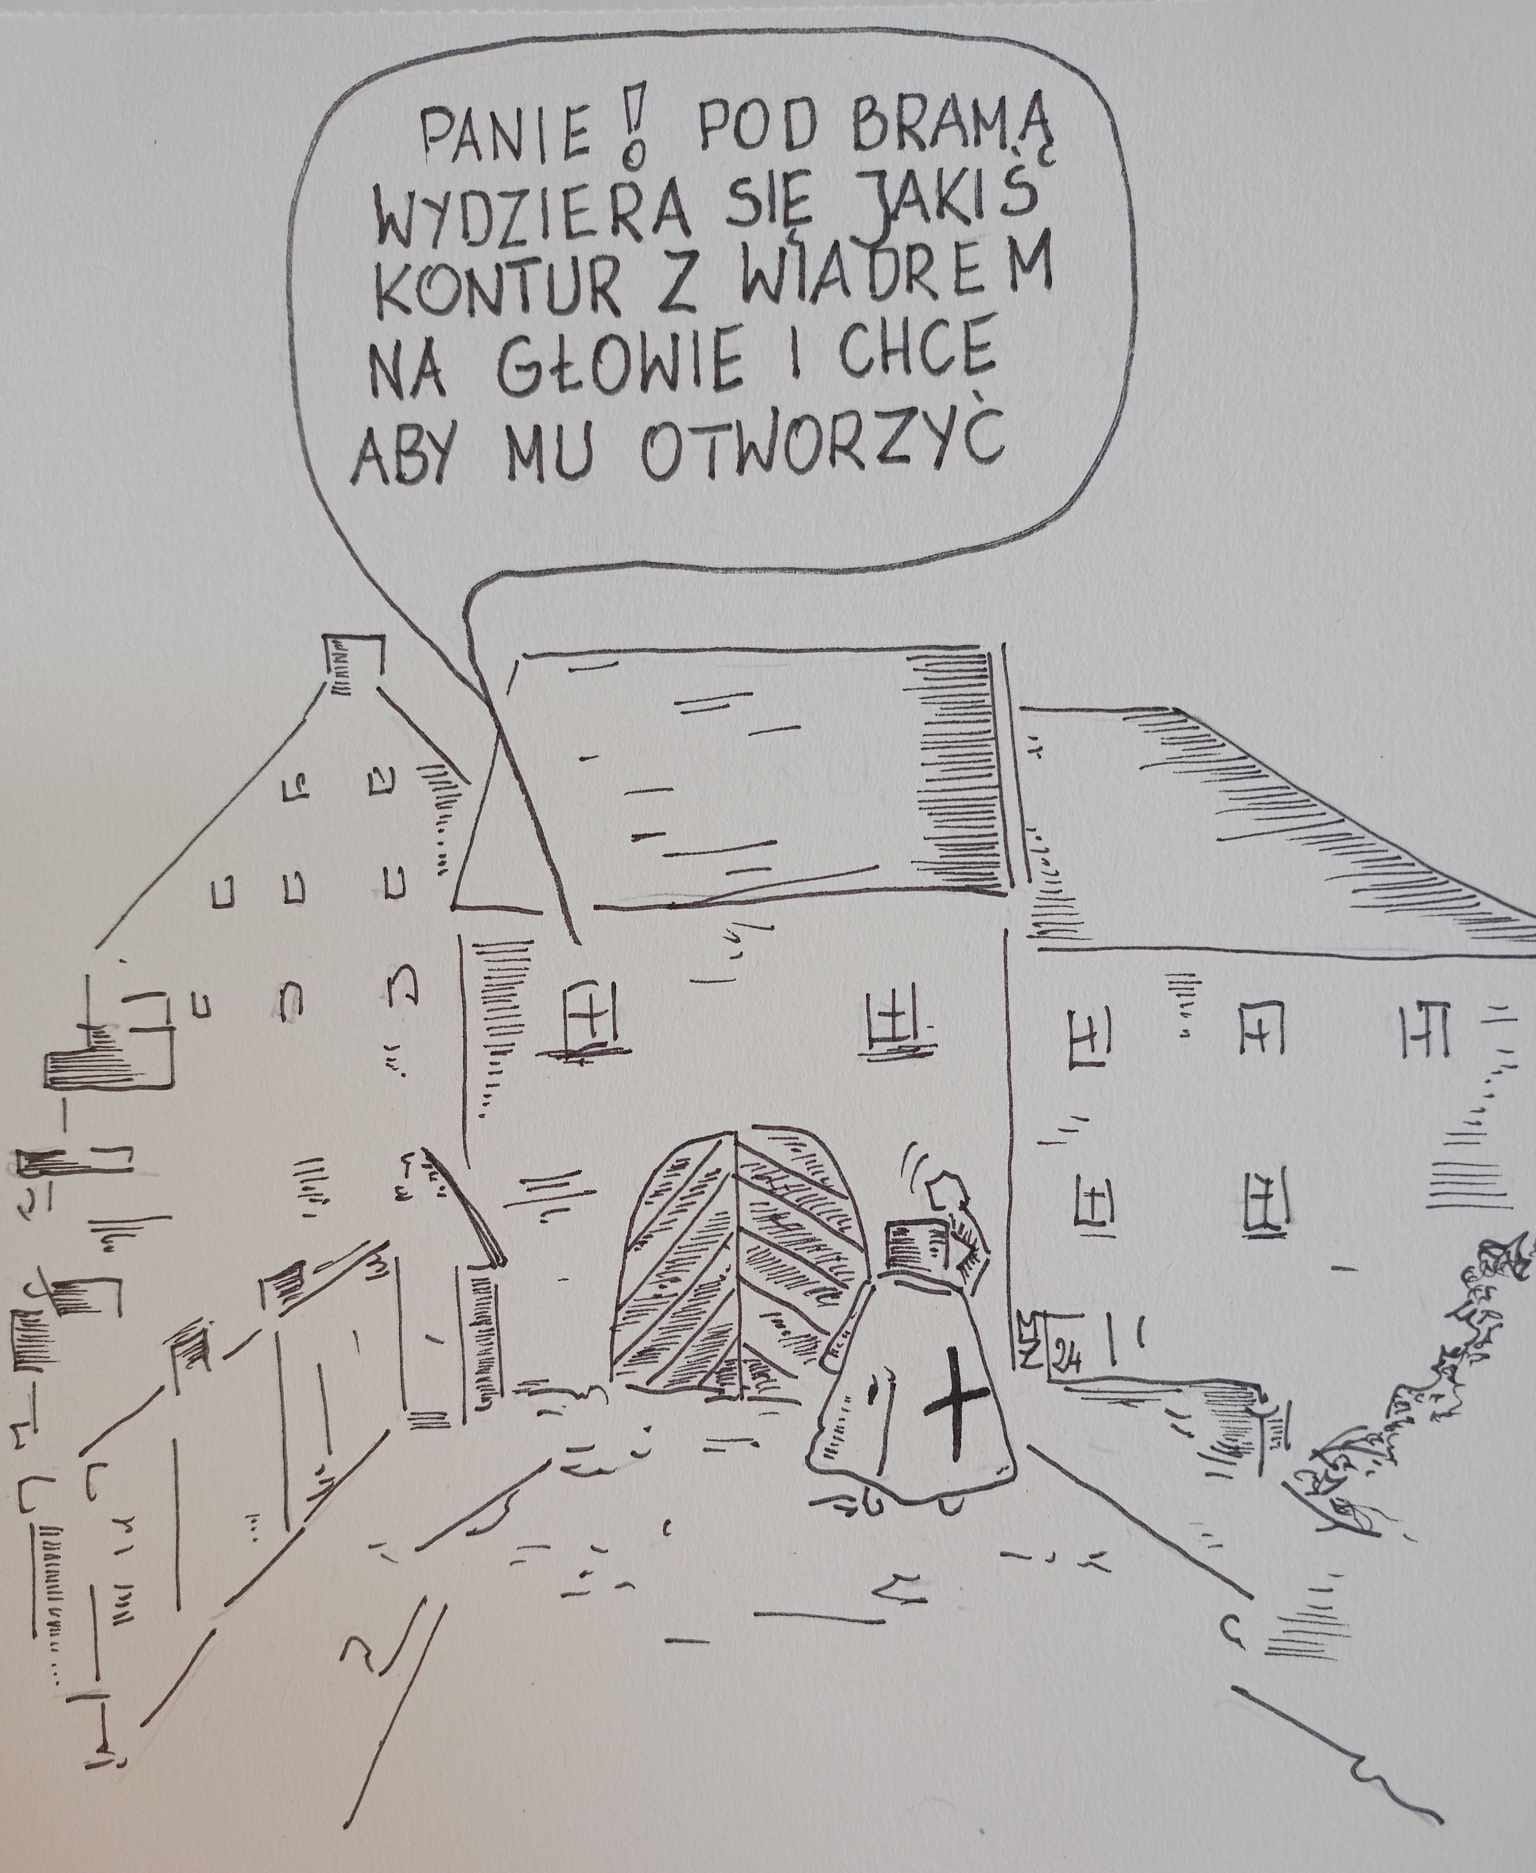 PANIE! POD BRAMĄ
WYDZIERA SIĘ JAKIŚ
KONTUR Z WIADREM
NA GŁOWIE I CHCE
ABY MU OTWORZYĆ
24